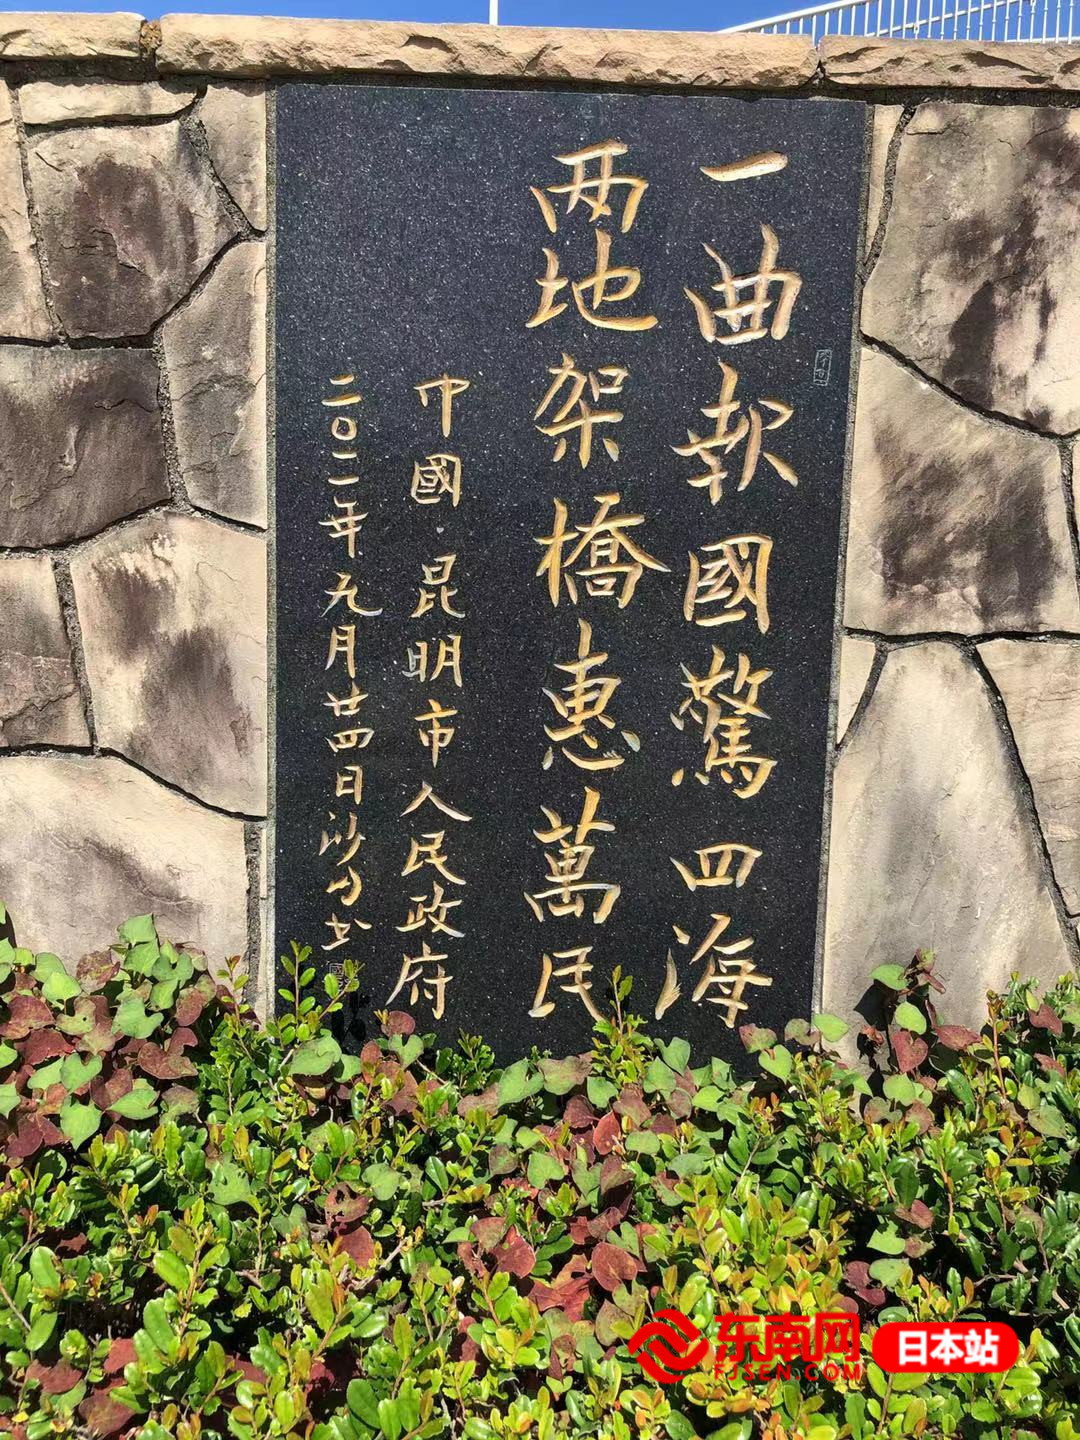 一曲報國驚四海
两地架橋惠萬民
中國·昆明市人民政府
二〇二二年九月廿四日沙勺书
东南网
FJSEN.COM
日本站